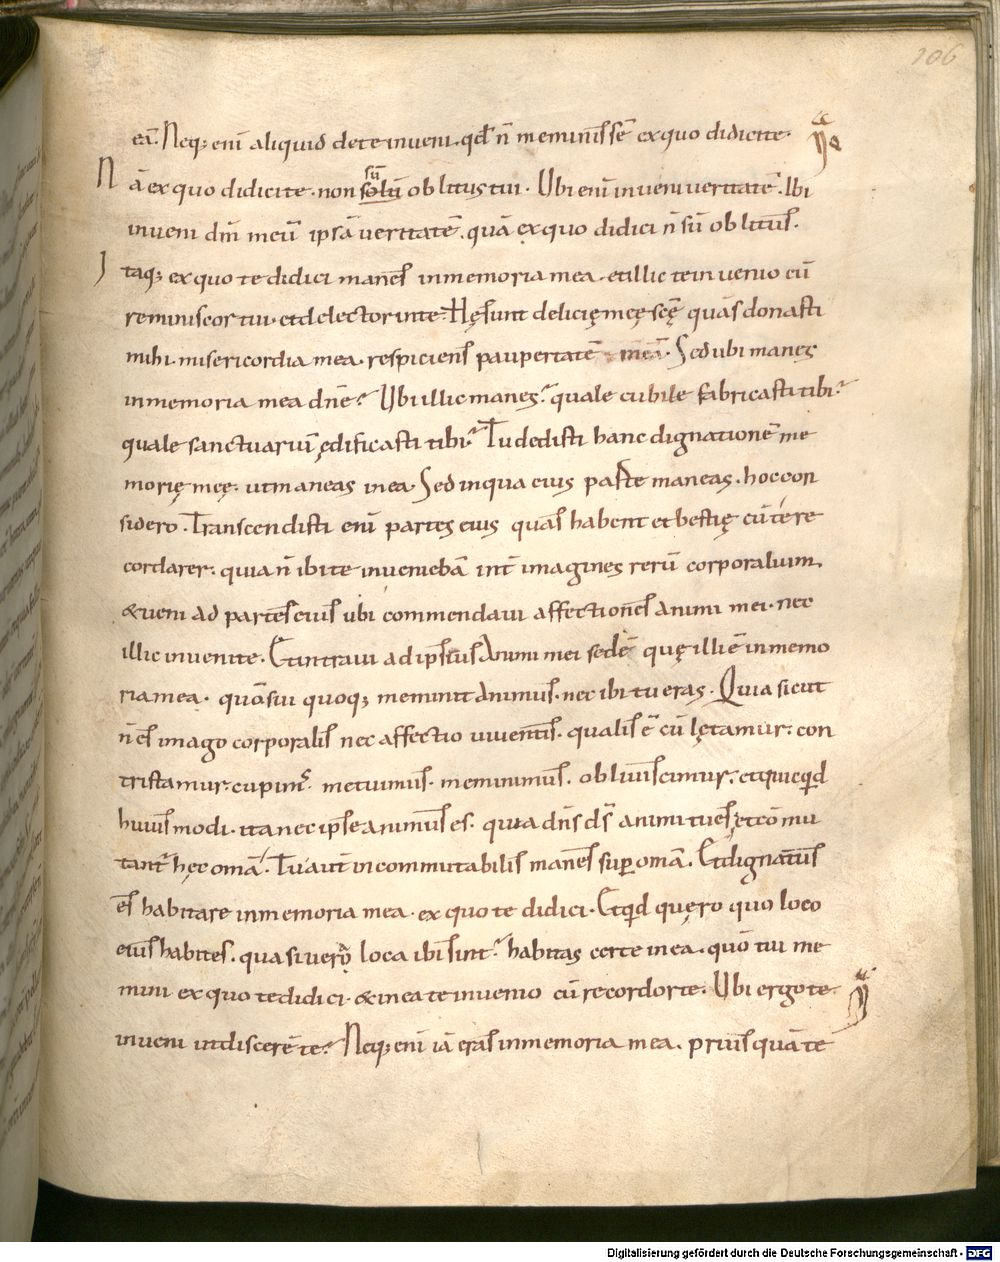 106
eā. Neq; enī aliquid de te inveni. qđ n̄ meminissē ex quo didici te.
Nā ex quo didici te. non sū solū oblitus tui. Ubi enī inveni veritatē. Ibi
inveni dm̄ meū ipsā veritatē. quā ex quo didici n̄ sū oblitus.
Itaq; ex quo te didici manes in memoria mea. et illic te invenio cū
reminiscor tui. et delector in te. Hę sunt delicię meę scę̄ quas donasti
mihi. misericordia mea. respiciens paupertatē meā. Sed ubi manes
in memoria mea dn̄e? Ubi illic manes? quale cubile fabricasti tibi?
quale sanctuariū ędificasti tibi? Tu dedisti hanc dignationē me
morię meę. ut maneas in ea. Sed in qua eius parte maneas. hoc con
sidero. Transcendisti enī partes eius quas habent et bestię cū te re
cordarer. quia n̄ ibi te inveniebā int̄ imagines rerū corporalium.
& veni ad partes eius ubi commendavi affectiones animi mei. nec
illic inveni te. Et intravi ad ipsius Animi mei sedē quę illi ē in memo
ria mea. quōsui quoq; meminit Animus. nec ibi tu eras. Quia sicut
n̄ es imago corporalis nec affectio viventis. qualis ē cū lętamur. con
tristamur. cupim'. metuimus. meminimus. obliviscimur. et quicqd
huius modi. ita nec ipse animus es. quia dn̄s ds̄ animi tu es. et cōmu
tant' hęc omā. Tu aut̄ incommutabilis manes sup omā. Et dignatus
es habitare in memoria mea. ex quo te didici. Et qd quęro quo loco
eius habites. quasi vero loca ibi sint? habitas certe in ea. quō tui me
mini ex quo te didici. & in ea te invenio cū recordor te. Ubi ergo te
inveni ut discerē te? Neq; enī iā eras in memoria mea. prius quā te
Digitalisierung gefördert durch die Deutsche Forschungsgemeinschaft - DFG